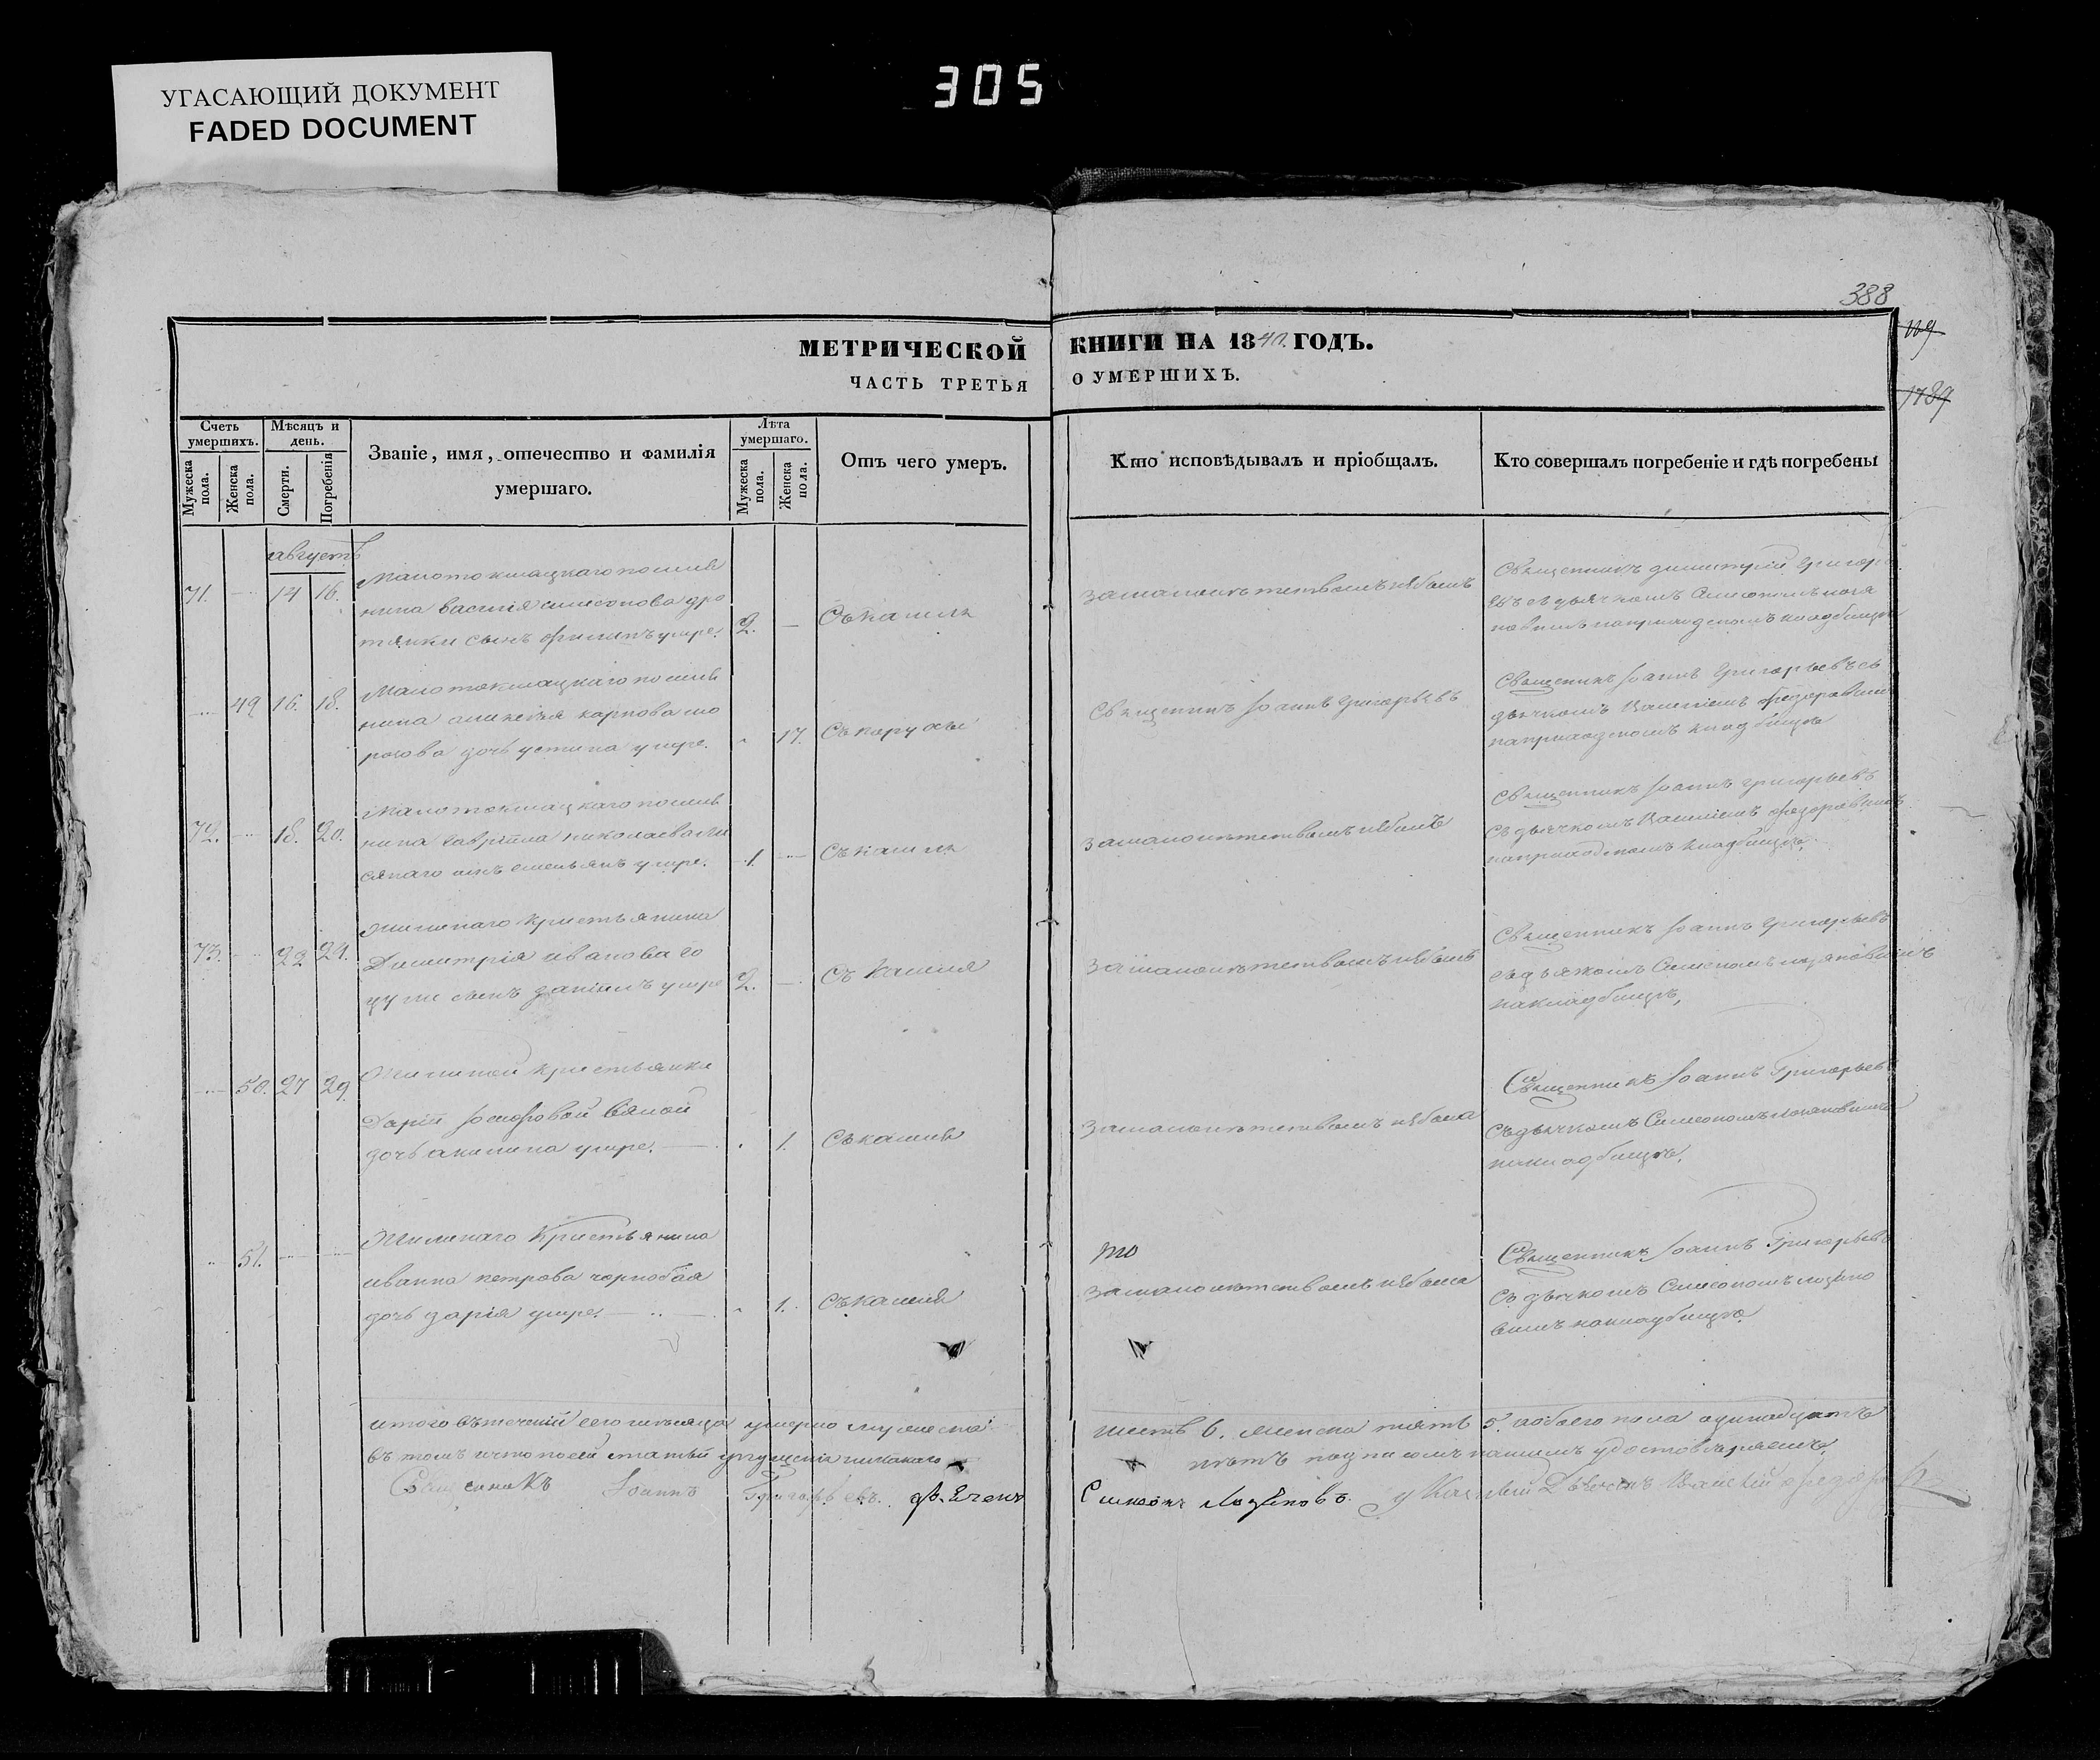 УГАСАЮЩИЙ ДОКУМЕНТ
FADED DOCUMENT
305
388
119
1789
МЕТРИЧЕСКОЙ КНИГИ НА 1840. ГОДЪ.
ЧАСТЬ ТРЕТЬЯ О УМЕРШИХЪ.
Счетъ умершихъ.
Мужеска пола.
Женска пола.
Мѣсяцъ и день.
Смерти.
Погребенія
Званіе, имя, отечество и фамилія умершаго.
Лѣта умершаго.
Мужеска пола.
Женска пола.
Отъ чего умеръ.
Кто исповѣдывалъ и пріобщалъ.
Кто совершалъ погребеніе и гдѣ погребены
августъ
71. 14 16.
Малотокмацкаго поселя
нина василія симеонова
сынъ филипъ умре.
2.
Съкашля
замалолѣтствомъ небылъ
Священникъ димитрій Григорь
евъ съ дьячкомъ Симеономъ лозя
новимъ наприходскомъ кладбищѣ
49 16. 18.
Малотокмацкаго поселя
нина алексѣя карпова мо
розова дочь устина умре.
17.
Священникъ Іоаннъ Григорьевъ
Священникъ Іоаннъ Григорьевъ съ
дьячкомъ Василіемъ федоровимъ
наприходскомъ кладбищѣ
72. 18. 20.
Малотокмацкаго поселя
нина гавріила николаева
умре.
1.
Съкашля
замалолѣтствомъ небылъ
Священникъ Іоаннъ Григорьевъ
съ дьячкомъ Василіемъ федоровимъ
наприходскомъ кладбищѣ.
73. 22 24.
Крестьянина
Димитрія иванова го
сынъ даніилъ умре
2.
Съ Кашля
замалолѣтствомъ небылъ
Священникъ Іоаннъ Григорьевъ
съдьячкомъ Симеономъ лозяновимъ
накладбищѣ,
50. 27 29.
крестьянки
Даріи
дочь акилина умре.
1.
Съкашля
замалолѣтствомъ небыла
Священникъ Іоаннъ Григорьевъ
Съдьячкомъ Симеономъ Лозяновимъ
накладбищѣ.
51.
Крестьянина
ивана петрова чорнобая
дочь дарія умре.
1.
Съкашля
то
замалолѣтствомъ небыла
Священникъ Іоаннъ Григорьевъ
Съ дьячкомъ Симеономъ лозяно
вимъ накладбищѣ
итого вътеченіи сего мѣсяца умерло мужеска шесть 6. женска пять 5. иобоего пола одинадцать
въ томъ что посей статьи упущенія никакого нѣтъ подписомъ нашимъ удостовѣряемъ,
Священикъ Іоаннъ Григорьевъ. дьячекъ Симеонъ Лозяновъ.